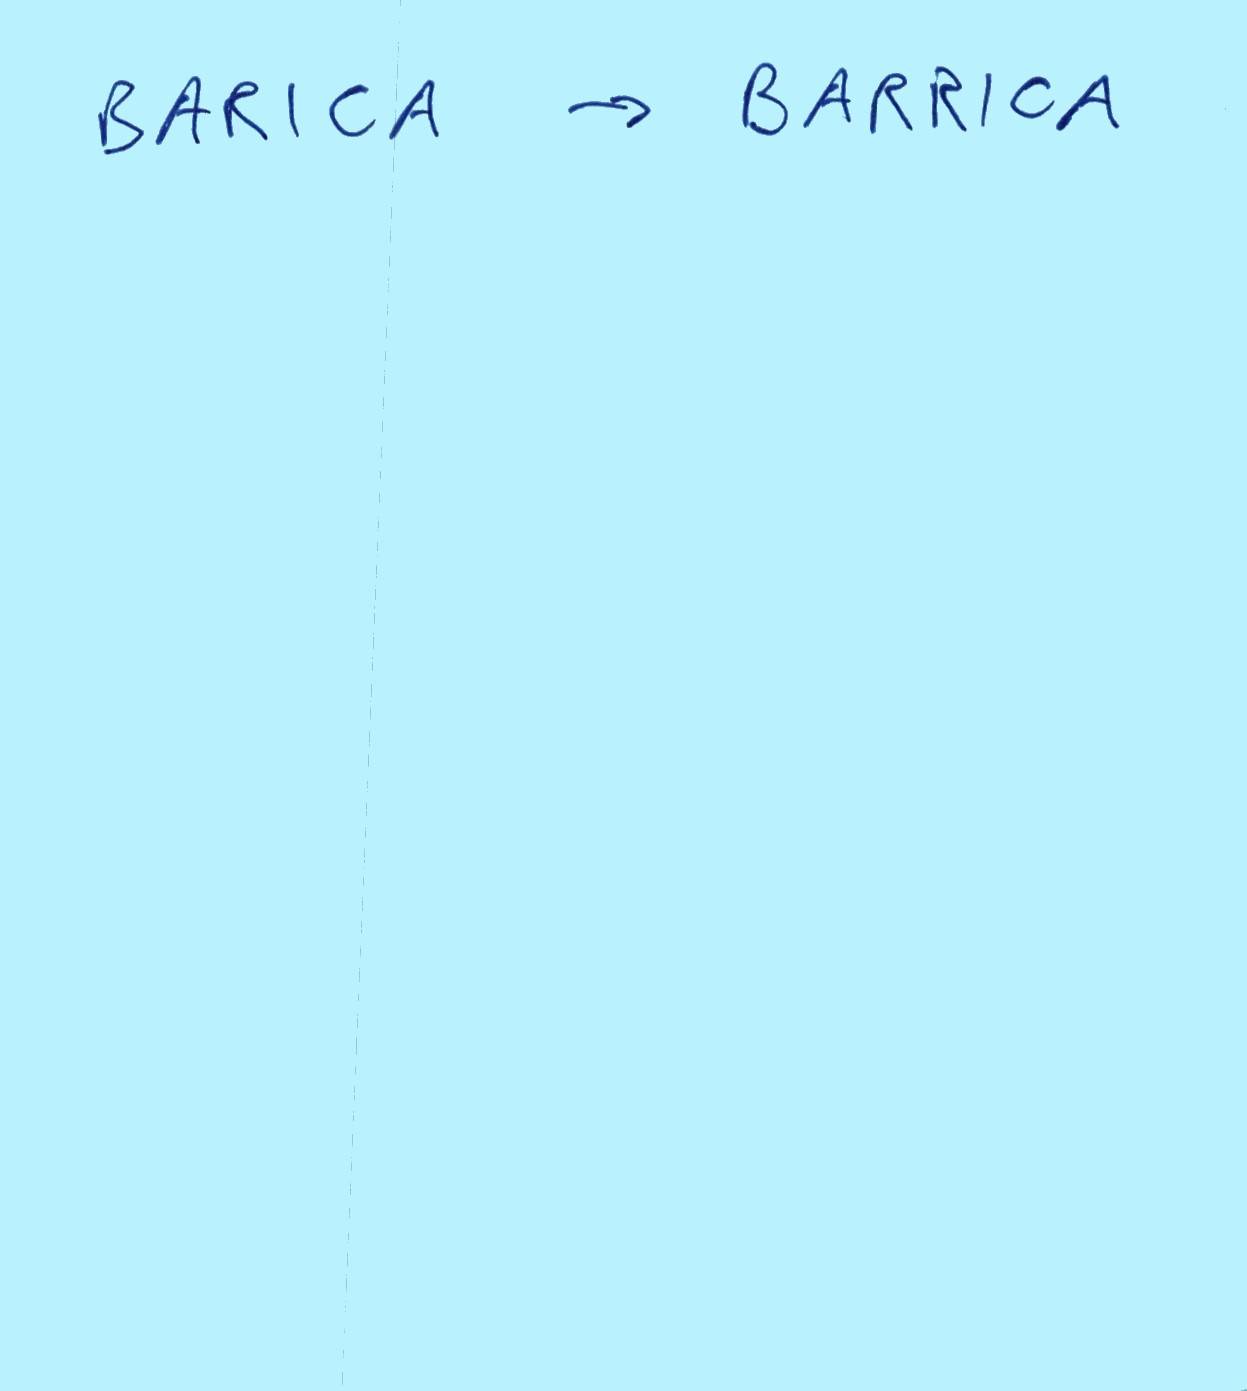 BARICA → BARRICA